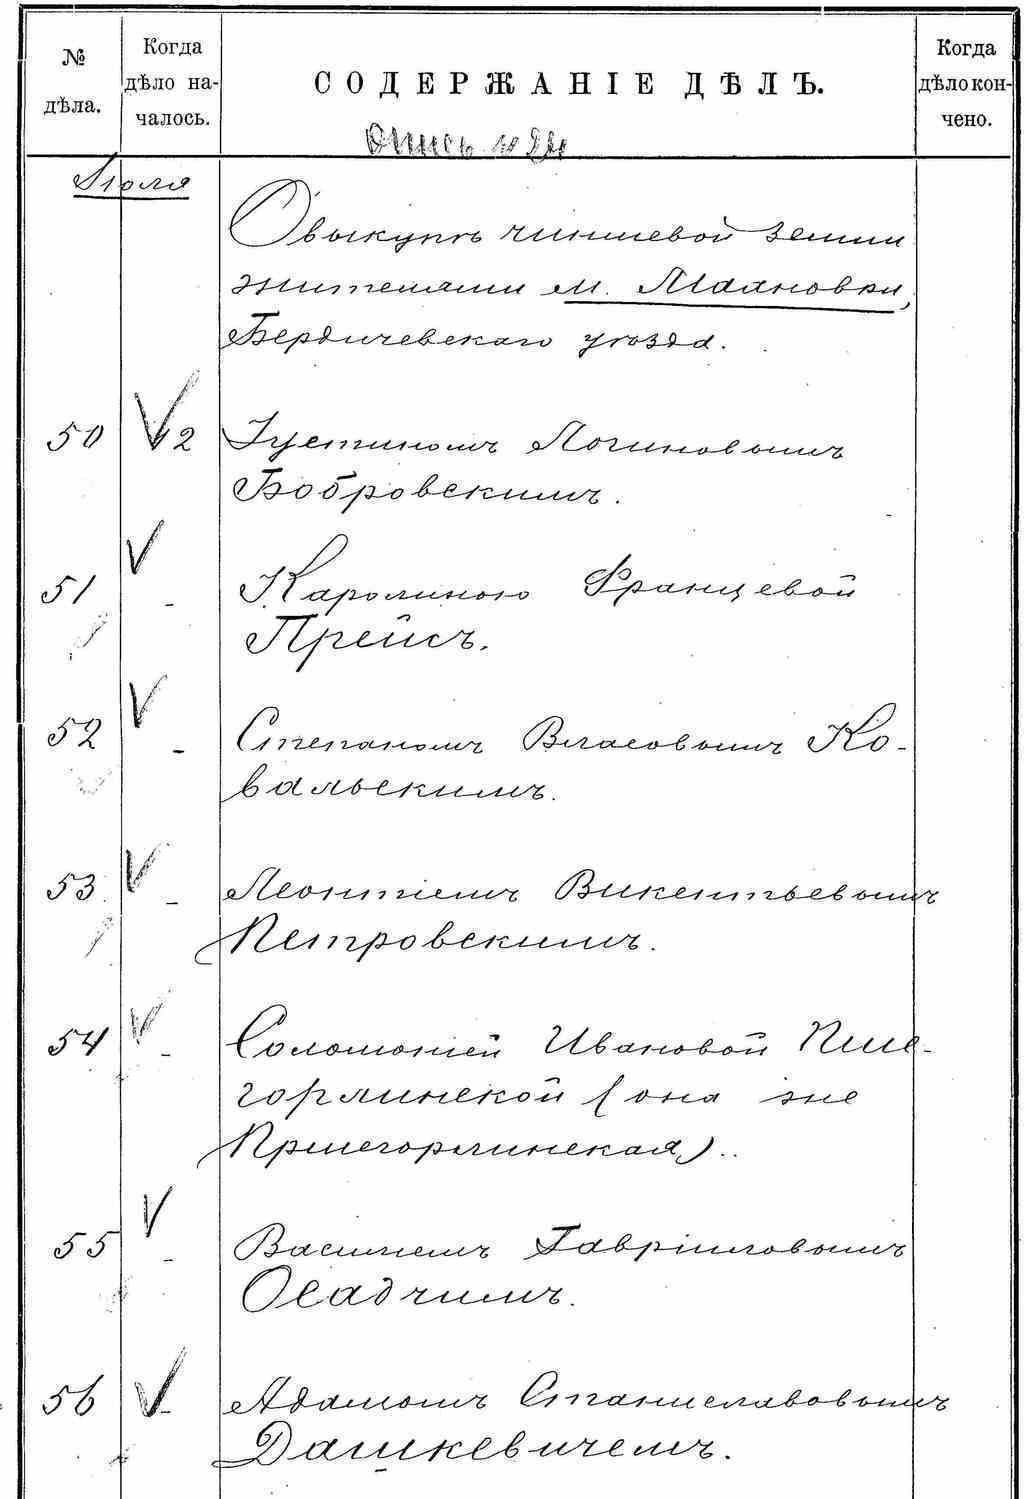 № дѣла.
Когда дѣло на-чалось.
СОДЕРЖАНІЕ ДѢЛЪ.
Когда дѣло кон-чено.
Опись № 24
Іюля
О выкупѣ чиншевой земли
жителями м. Махновки,
Бердичевскаго уѣзда.
50 12 Іустиномъ Логиновымъ
Бобровскимъ.
51 - Каролиною Францевой
Прейсъ.
52 - Степаномъ Власовымъ Ко-
вальскимъ.
53 - Леонтіемъ Викентьевымъ
Петровскимъ.
54 - Соломоніей Ивановой Пше-
горлинской (она же
Пршегорлинская)..
55 - Василіемъ Гавріиловымъ
Осадчимъ.
56 - Адамомъ Станиславовымъ
Дашкевичемъ.